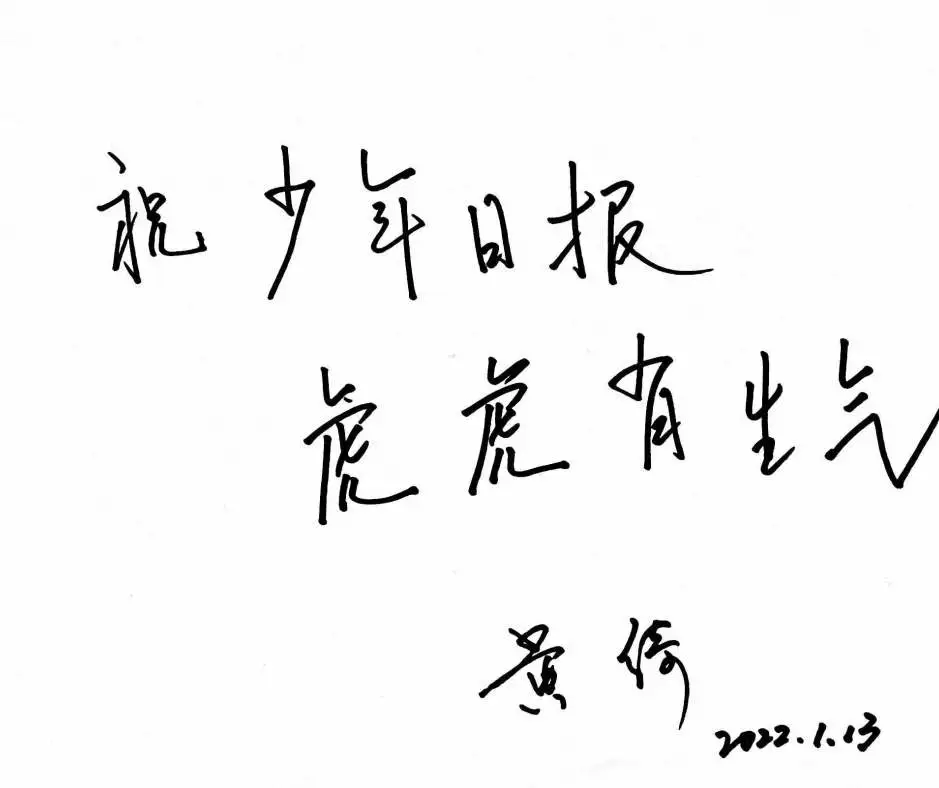 祝少年日报
虎虎有生气
黄倚
2022.1.13